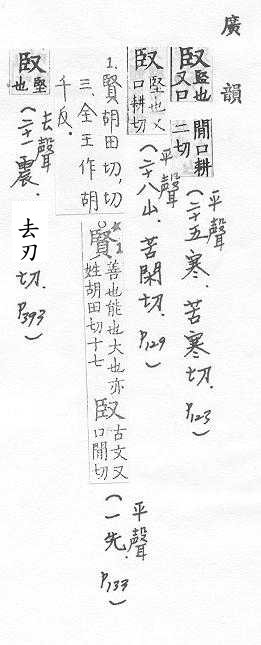 廣韻
臤堅也又口閒口耕二切(平聲二十五寒.苦寒切.P123)
臤堅也又口耕切(平聲二十八山.苦閑切.P129)
1.賢胡田切,切三、全王作胡千反。
賢善也能也大也亦姓胡田切十七臤古文又口閒切(平聲一先.P133)
臤堅也(去聲二十一震.去刃切.P393)